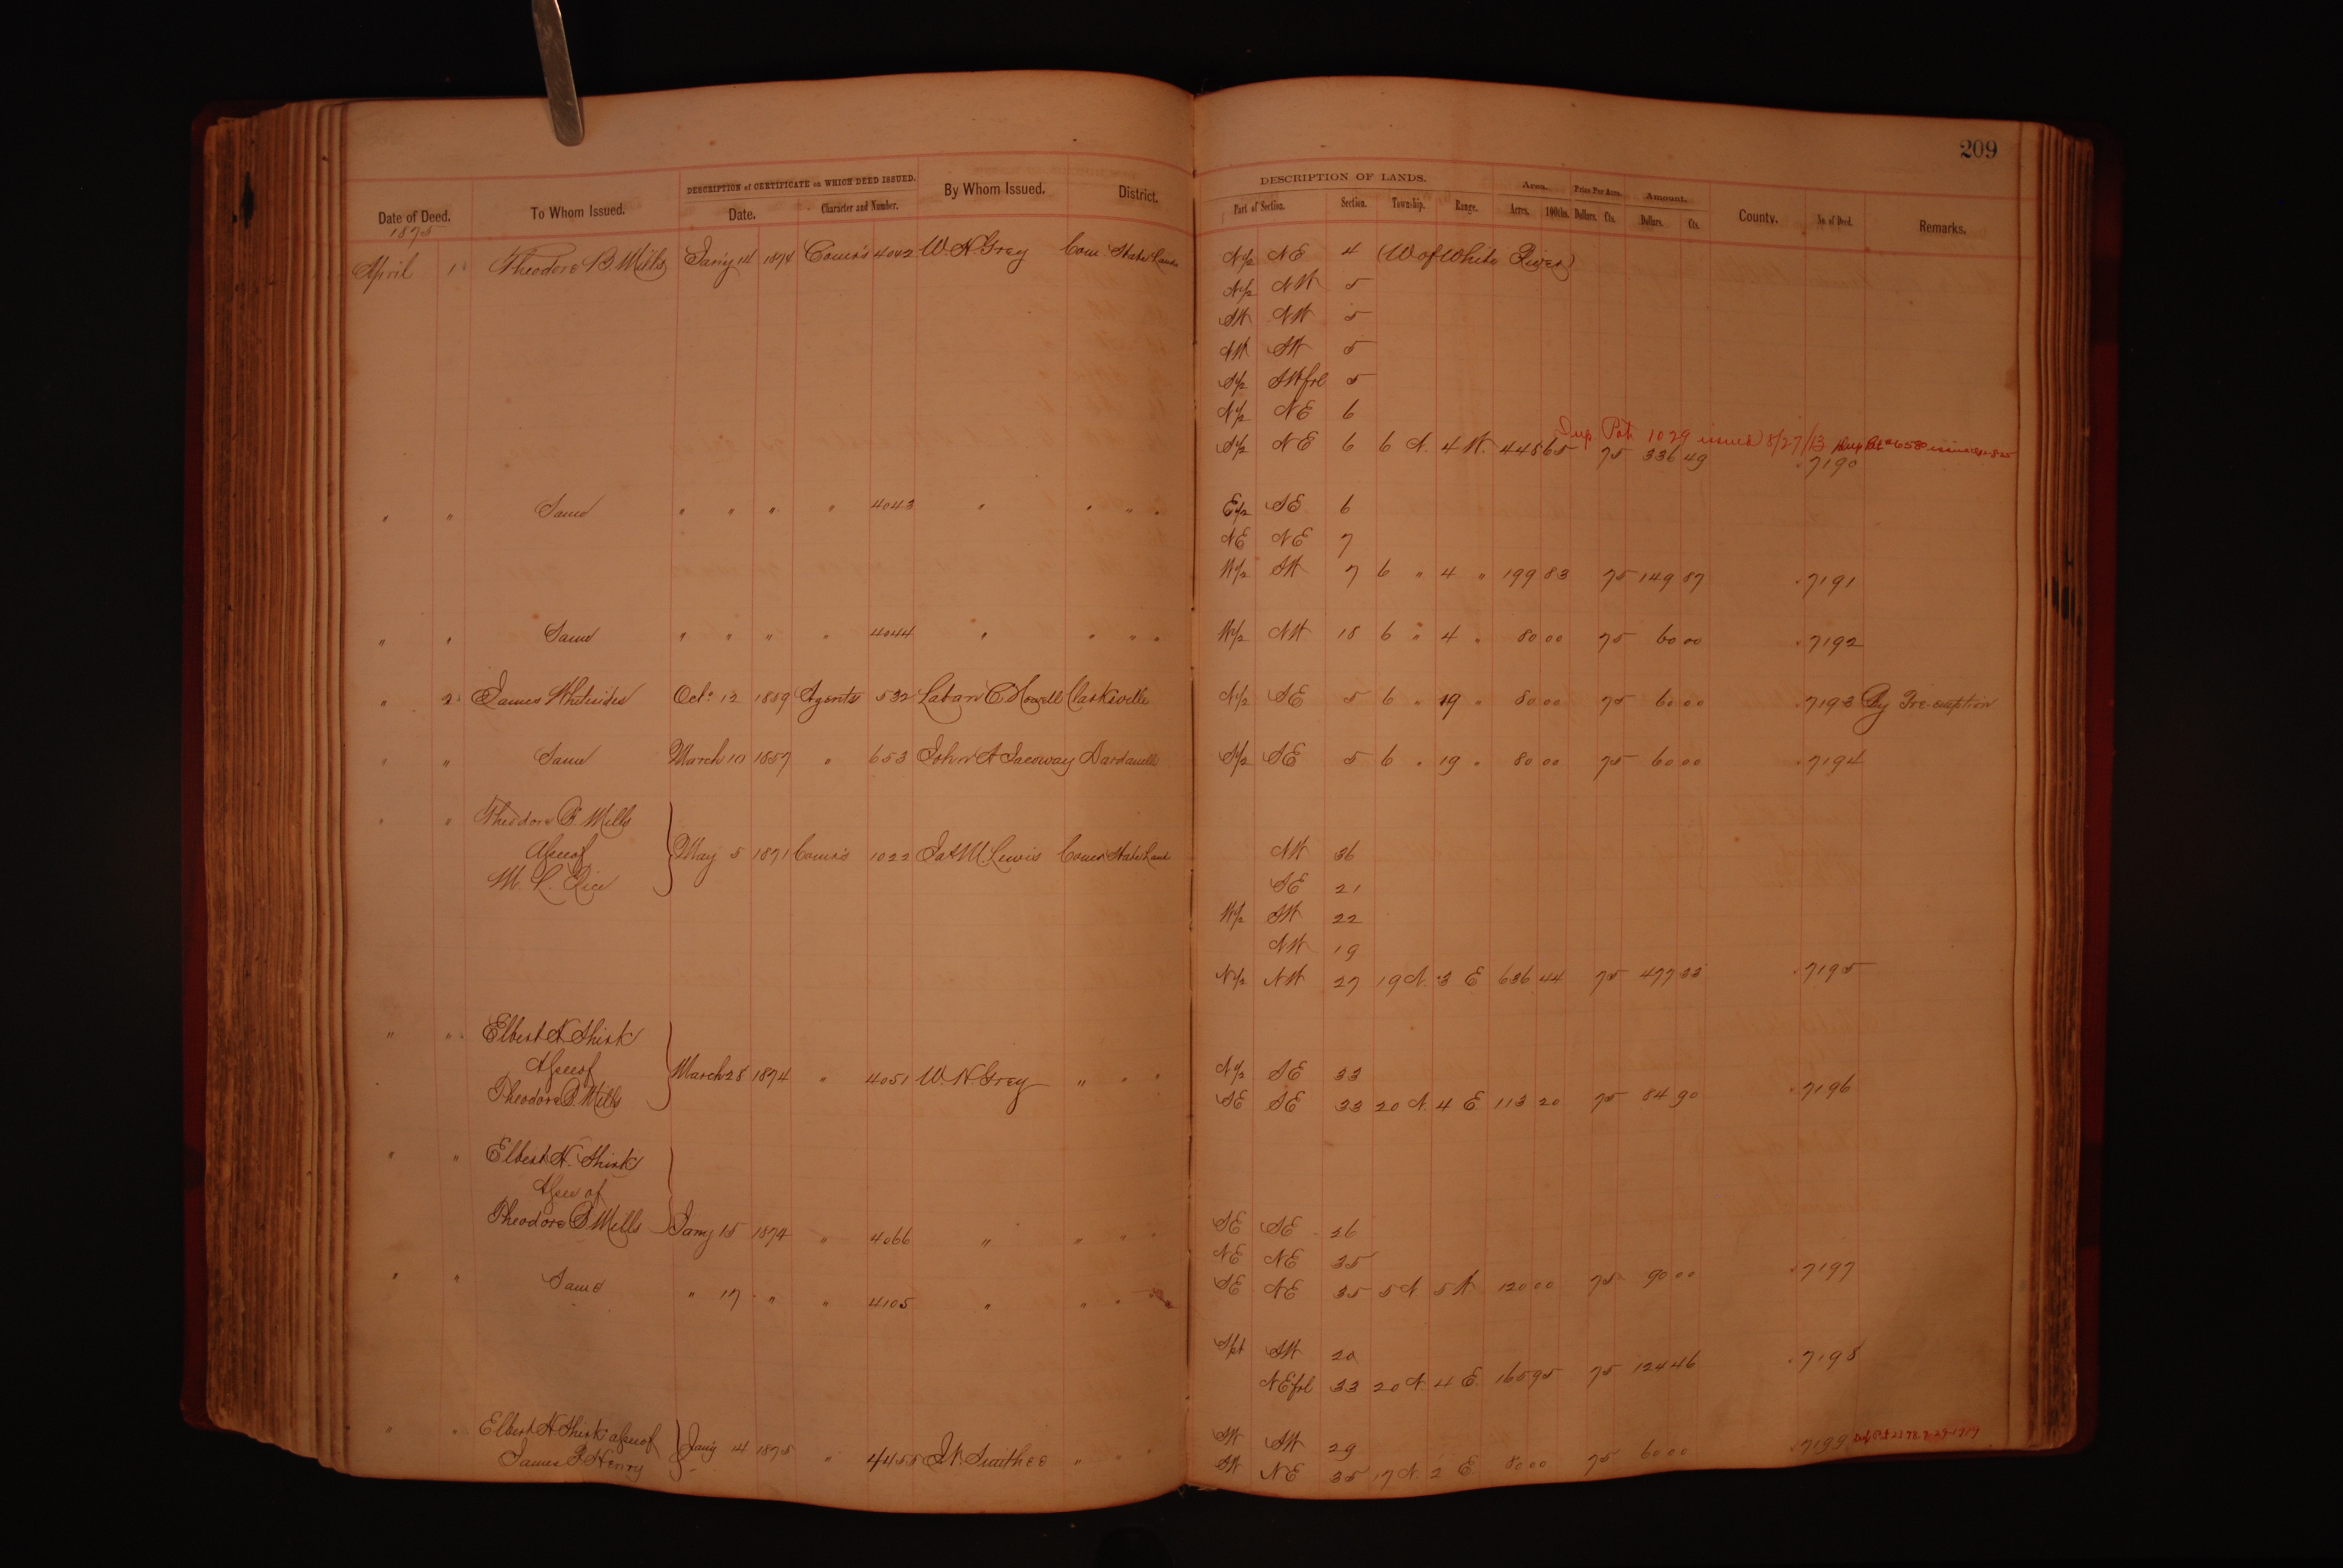 209
DESCRIPTION of CERTIFICATE on WHICH DEED ISSUED. DESCRIPTION OF LANDS. Area. Price Per Acre. Amount.
Date of Deed. To Whom Issued. Date. Character and Number. By Whom Issued. District. Part of Section. Section. Township. Range. Acres. 100ths. Dollars. Cts. Dollars. Cts. County. No. of Deed. Remarks.
1875
April 1 Theodore B. Mills Jan'y 14 1874 Comr's 4042 W. H. Grey Com State Lands N/2 NE 4 (W of White River)
N/2 NW 5
SW NW 5
NW SW 5
S/2 SW frl 5
N/2 NE 6
Dup Pat. 1029 issued 8/27/13
S/2 NE 6 6 N. 4 W. 448 65 75 336 49 7190
" " Same " " " " 4043 " " " " E/2 SE 6
NE NE 7
W/2 SW 7 6 " 4 " 199 83 75 149 87 7191
" " Same " " " " 4044 " " " " W/2 NW 18 6 " 4 " 80 00 75 60 00 7192
" 2 James Whitesides Oct. 12 1859 Agents 532 Laban C. Howell Clarksville N/2 SE 5 6 " 19 " 80 00 75 60 00 7193 By Pre-emption
" " Same March 10 1857 " 653 John A Jacoway Dardanelle S/2 SE 5 6 " 19 " 80 00 75 60 00 7194
" " Theodore B. Mills
Assee of May 5 1871 Comr's 1022 Jas M. Lewis Comr State Land NW 36
M. L. Rice SE 21
W/2 SW 22
NW 19
N/2 NW 27 19 N. 3 E 636 44 75 477 33 7195
" " Elbert H. Shirk
Assee of March 28 1874 " 4051 W. H. Grey " " " N/2 SE 33
Theodore B. Mills SE SE 33 20 N. 4 E 113 20 75 84 90 7196
" " Elbert H. Shirk
Assee of
Theodore B. Mills Jany 15 1874 " 4066 " " " " SE SE 26
NE NE 35
SE NE 35 5 N 5 W 120 00 75 90 00 7197
" " Same " 17 " " 4105 " " " "
Spt SW 20
NE frl 33 20 N. 4 E. 165 95 75 124 46 7198
" " Elbert H. Shirk assee of Jan'y 14 1875 " 4455 J. N. Smithee " " " SW SW 29
James P. Henry SW NE 35 17 N. 2 E. 80 00 75 60 00 7199